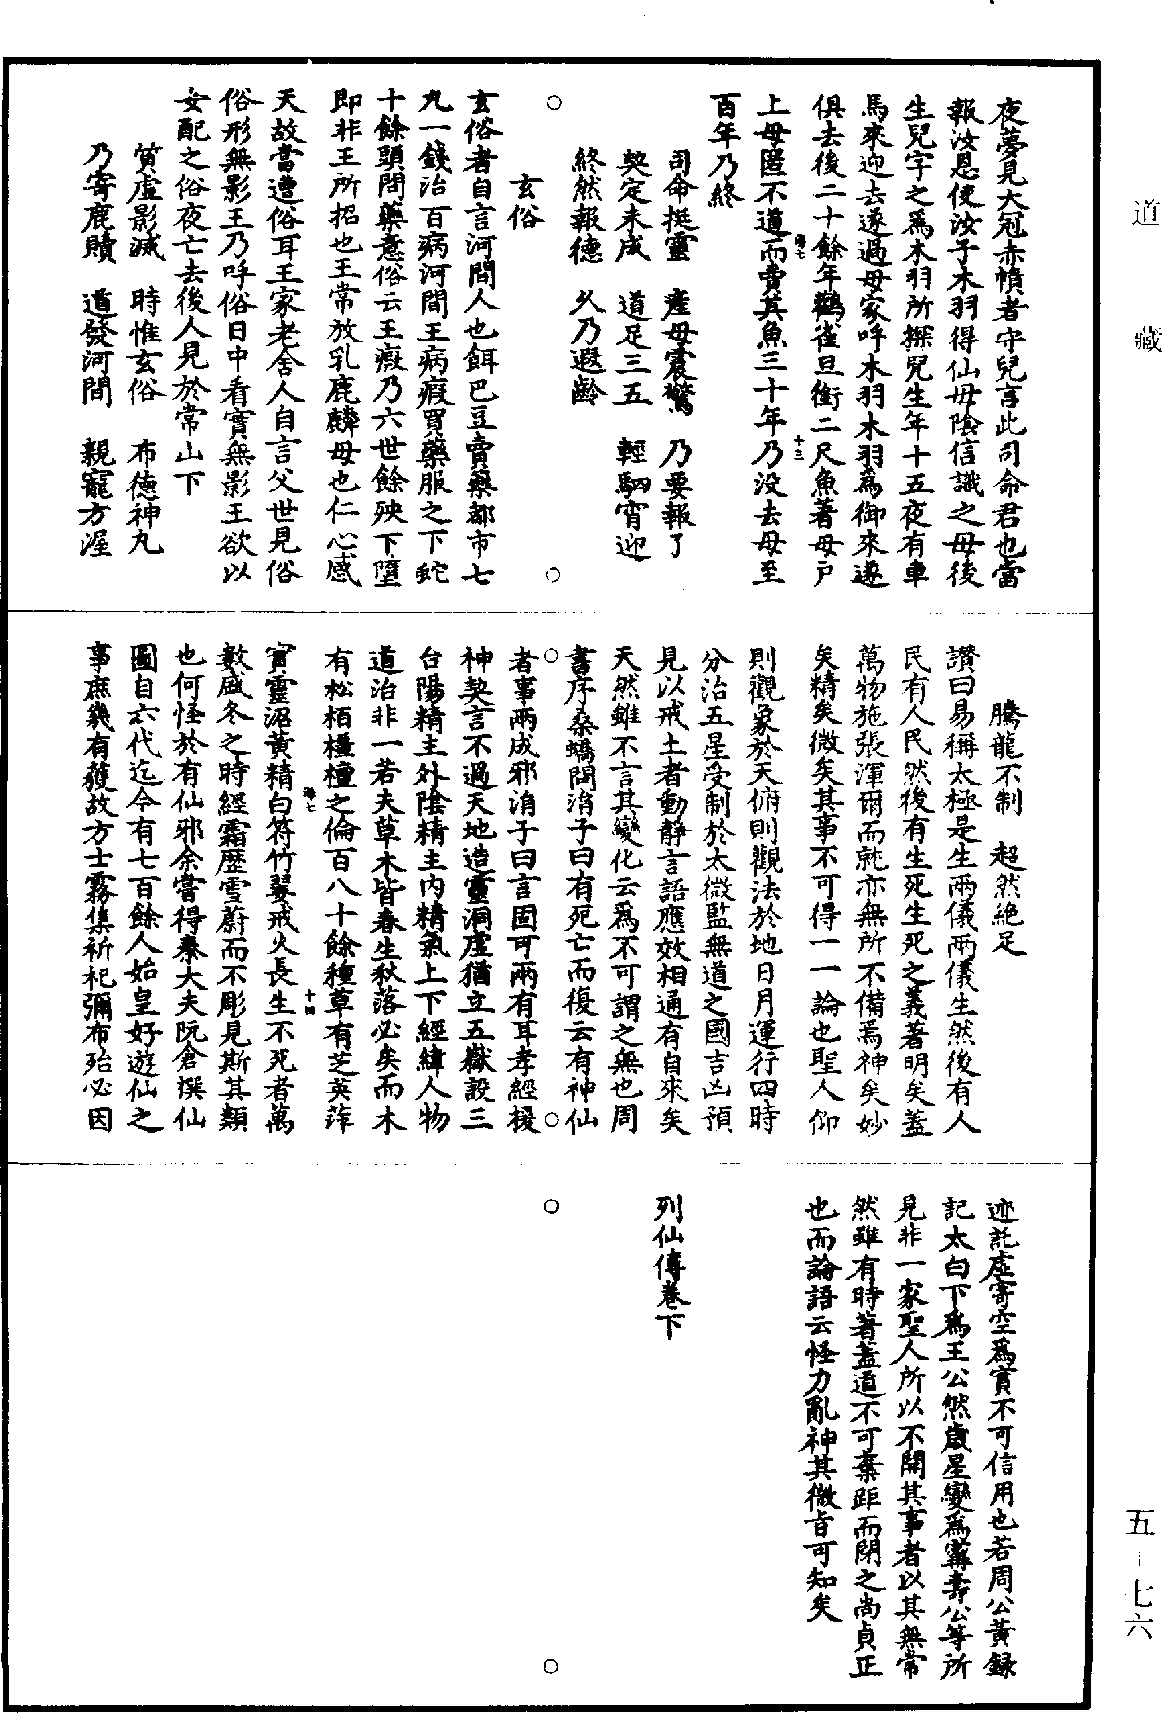 道藏
夜夢見大冠赤幘者守兒言此司命君也當
報汝恩使汝子木羽得仙母陰信識之母後
生兒字之爲木羽所探兒生年十五夜有車
馬來迎去遂過母家呼木羽木羽爲御來遂
俱去後二十餘年鸛雀旦銜二尺魚著母戶
上母匿不道而賣其魚三十年乃沒去母至
百年乃終
司命挺靈　產母震驚　乃要報了
契定未成　道足三五　輕駟宵迎
終然報德　久乃遐齡
玄俗
玄俗者自言河間人也餌巴豆賣藥都市七
丸一錢治百病河間王病瘕買藥服之下蛇
十餘頭問藥意俗云王瘕乃六世餘殃下墮
即非王所招也王常放乳鹿麟母也仁心感
天故當遭俗耳王家老舍人自言父世見俗
俗形無影王乃呼俗日中看實無影王欲以
女配之俗夜亡去後人見於常山下
質虛影滅　時惟玄俗　布德神丸
乃寄鹿贖　道發河間　親寵方渥
騰龍不制　超然絶足
讚曰易稱太極是生兩儀兩儀生然後有人
民有人民然後有生死生死之義著明矣蓋
萬物施張渾爾而就亦無所不備焉神矣妙
矣精矣微矣其事不可得一一論也聖人仰
則觀象於天俯則觀法於地日月運行四時
分治五星受制於太微監無道之國吉凶預
見以戒士者動靜言語應效相通有自來矣
天然雖不言其變化云爲不可謂之無也周
書序桑蟜問涓子曰有死亡而復云有神仙
者事兩成邪涓子曰言固可兩有耳孝經援
神契言不過天地造靈洞虛猶立五嶽設三
台陽精主外陰精主內精氣上下經緯人物
道治非一若夫草木皆春生秋落必矣而木
有松栢橿檀之倫百八十餘種草有芝英萍
實靈沼黃精白符竹翣戒火長生不死者萬
數盛冬之時經霜歷雪蔚而不彫見斯其類
也何怪於有仙邪余嘗得秦大夫阮倉撰仙
圖自六代迄今有七百餘人始皇好遊仙之
事庶幾有獲故方士霧集祈祀彌布殆必因
迹託虛寄空爲實不可信用也若周公黃録
記太白下爲王公然歲星變爲寗壽公等所
見非一家聖人所以不開其事者以其無常
然雖有時著蓋道不可棄距而閉之尚貞正
也而論語云怪力亂神其微旨可知矣
列仙傳卷下
五－七六